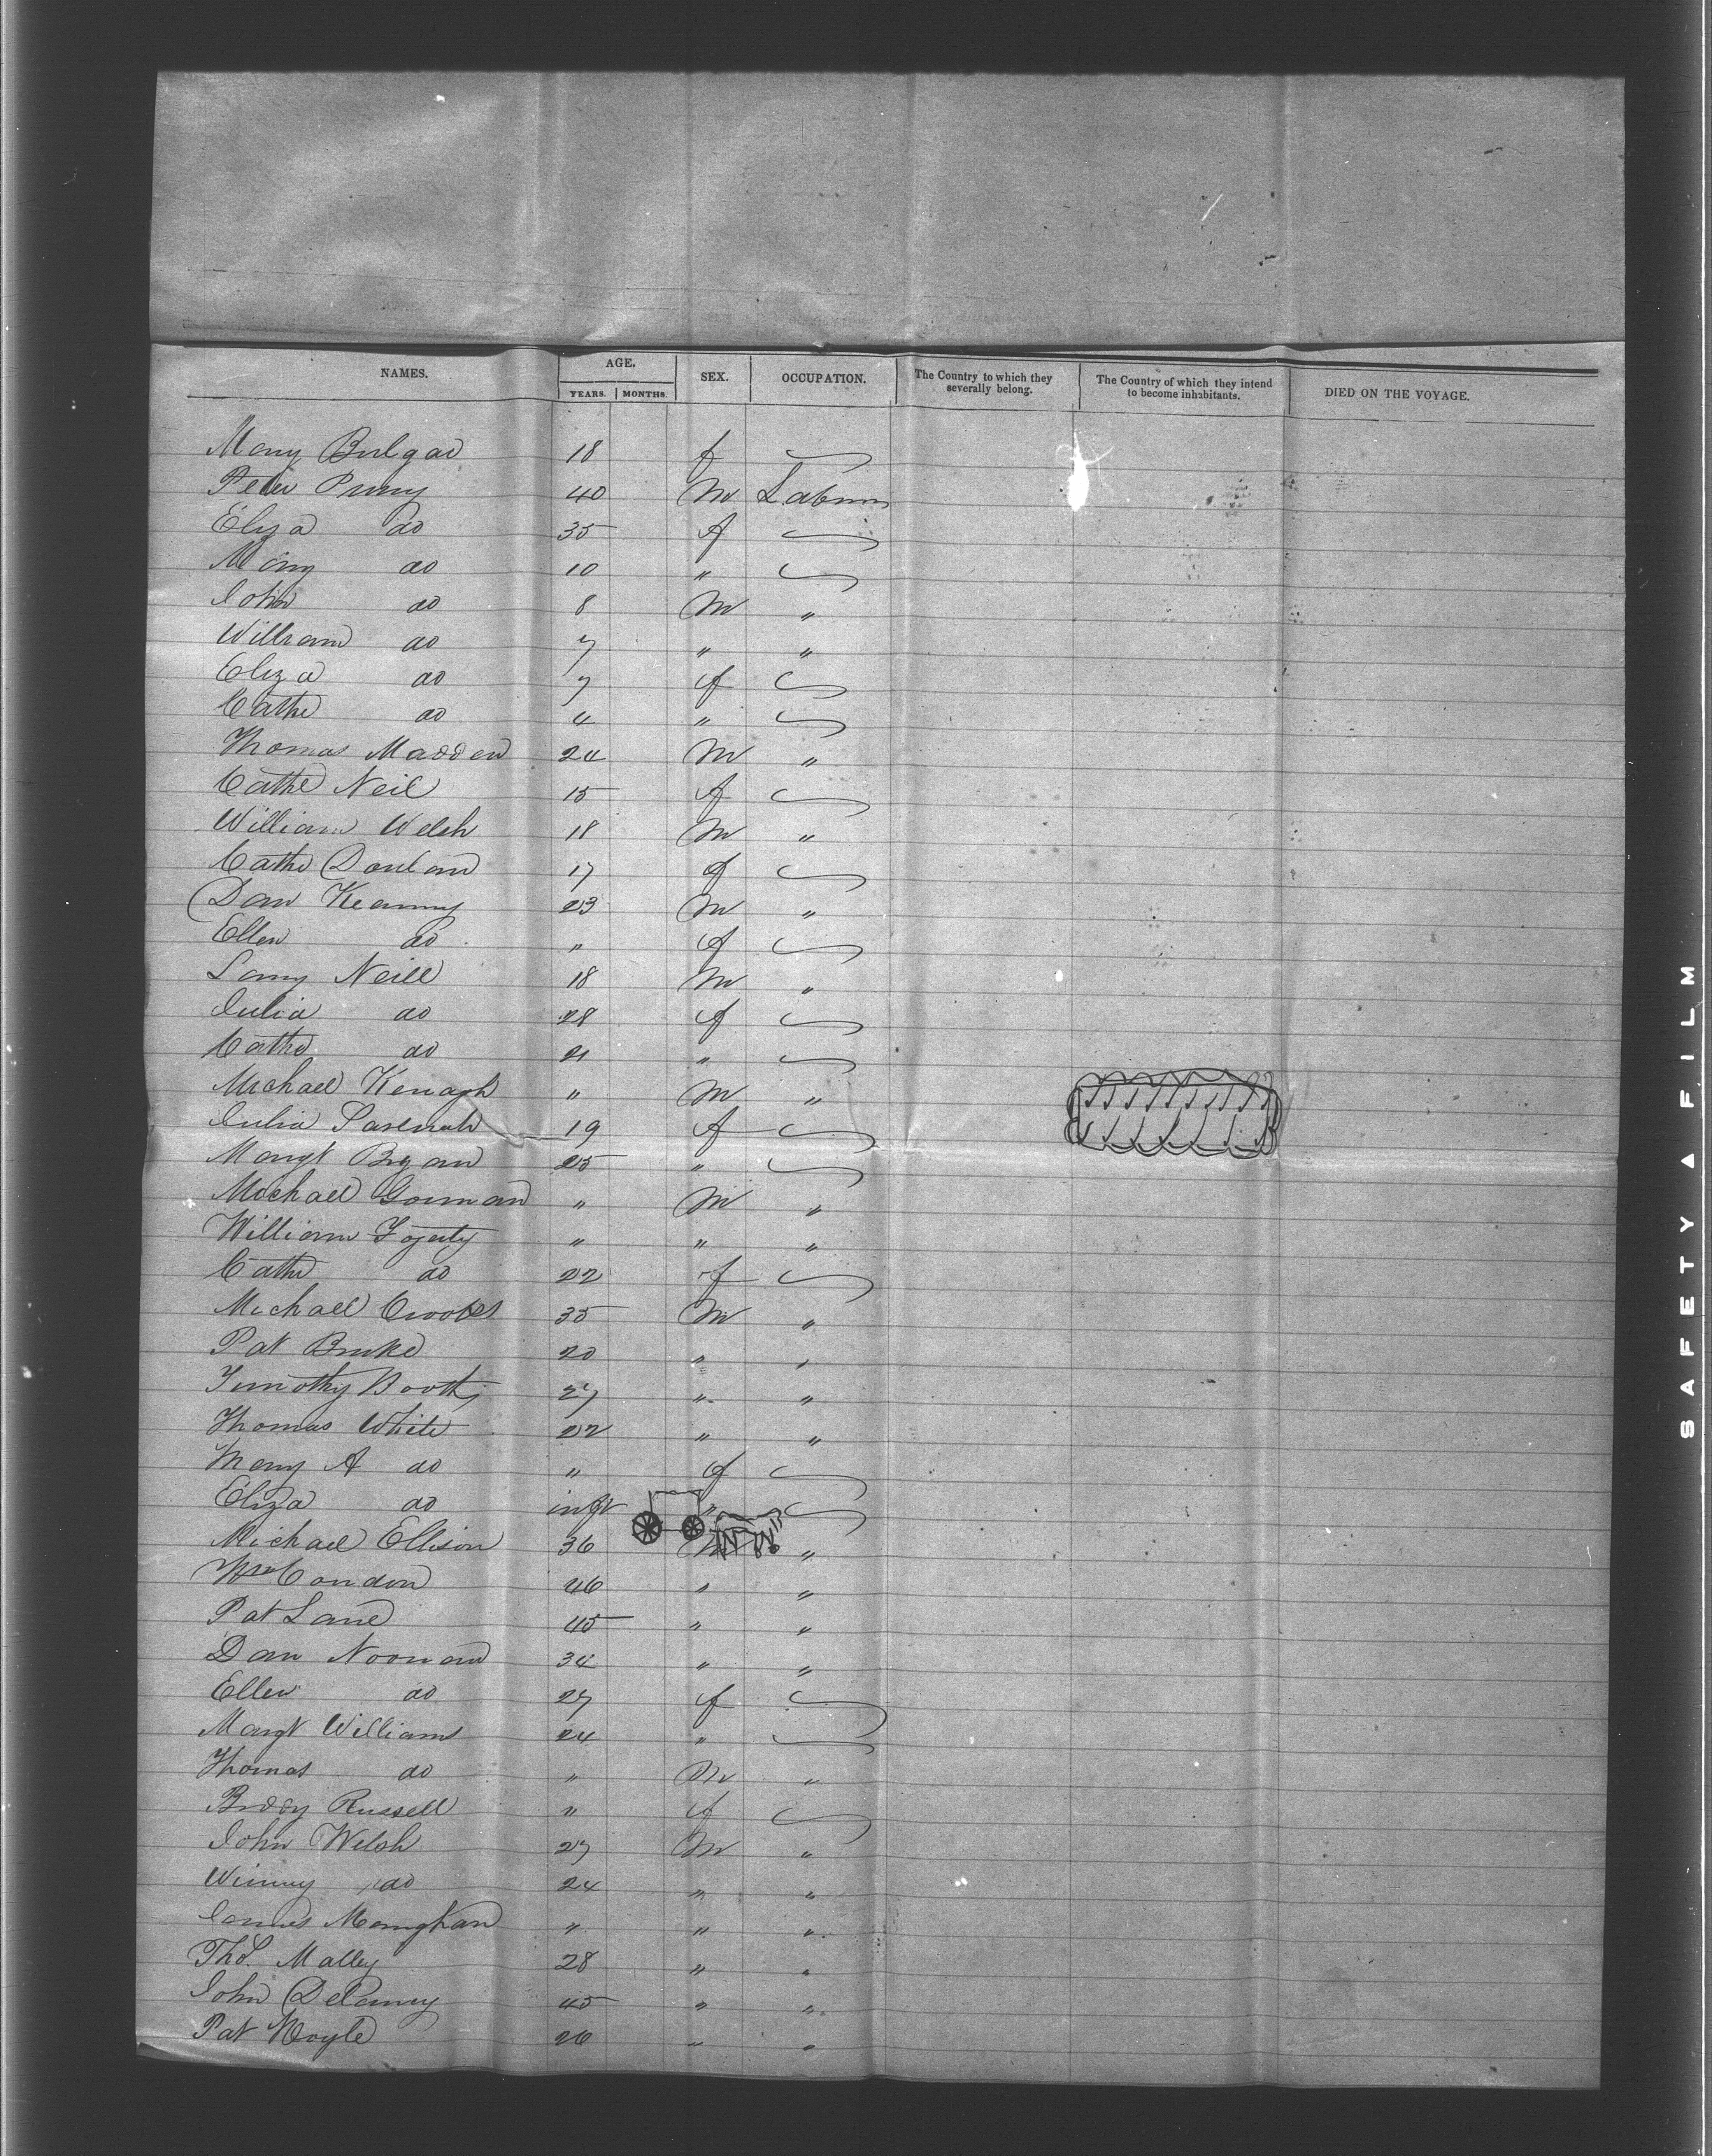 NAMES. AGE. SEX. OCCUPATION. The Country to which they severally belong. The Country of which they intend to become inhabitants. DIED ON THE VOYAGE.
YEARS. MONTHS.
Mary 18 f
Peter 40 M Labourer
Eliza do 35 f
Mary do 10 "
John do 8 M "
William do 7 " "
Eliza do 7 f
Cathe do 4 "
Thomas Madden 24 M "
Cathe Neil 15 f
William Welsh 18 M "
Cathe 17 f
Dan Kearny 23 M "
Ellen do " f
Neill 18 M "
Julia do 28 f
Cathe do 21 "
Michael Kenagh " M "
Julia 19 f
Margt Bryan 25 "
Michael Gorman " M "
William Fogerty " " "
Cathe do 22 f
Michael 35 M "
Pat Burke 20 " "
Timothy 27 " "
Thomas White 22 " "
Mary A do " f
Eliza do inft "
Michael Ellison 36 M "
Wm Condon 46 " "
Pat Lane 45 " "
Dan Noonan 34 " "
Ellen do 27 f
Margt Williams 24 "
Thomas do " M "
Biddy Russell " f
John Welsh 27 M "
Winny do 24 " "
James " " "
Thos. Malley 28 " "
John Delaney 45 " "
Pat 26 " "
SAFETY A FILM